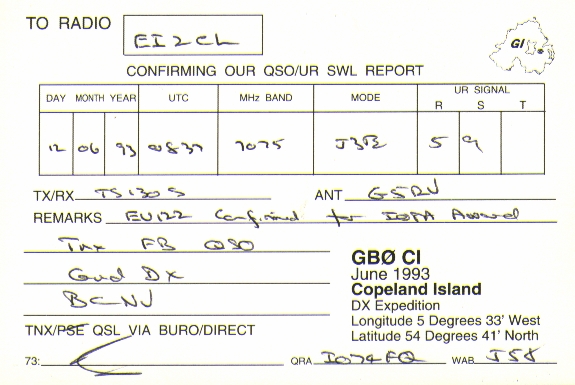 TO RADIO EI2CL
GI
CONFIRMING OUR QSO/UR SWL REPORT
DAY MONTH YEAR UTC MHz BAND MODE UR SIGNAL
R S T
12 06 93 0837 7075 J3E 5 9
TX/RX TS130S ANT G5RV
REMARKS EU122 Confirmed for IOTA Award
Tnx FB QSO
Good DX
BCNU
GBØ CI
June 1993
Copeland Island
DX Expedition
Longitude 5 Degrees 33' West
Latitude 54 Degrees 41' North
TNX/PSE QSL VIA BURO/DIRECT
73: QRA IO74FQ WAB J58